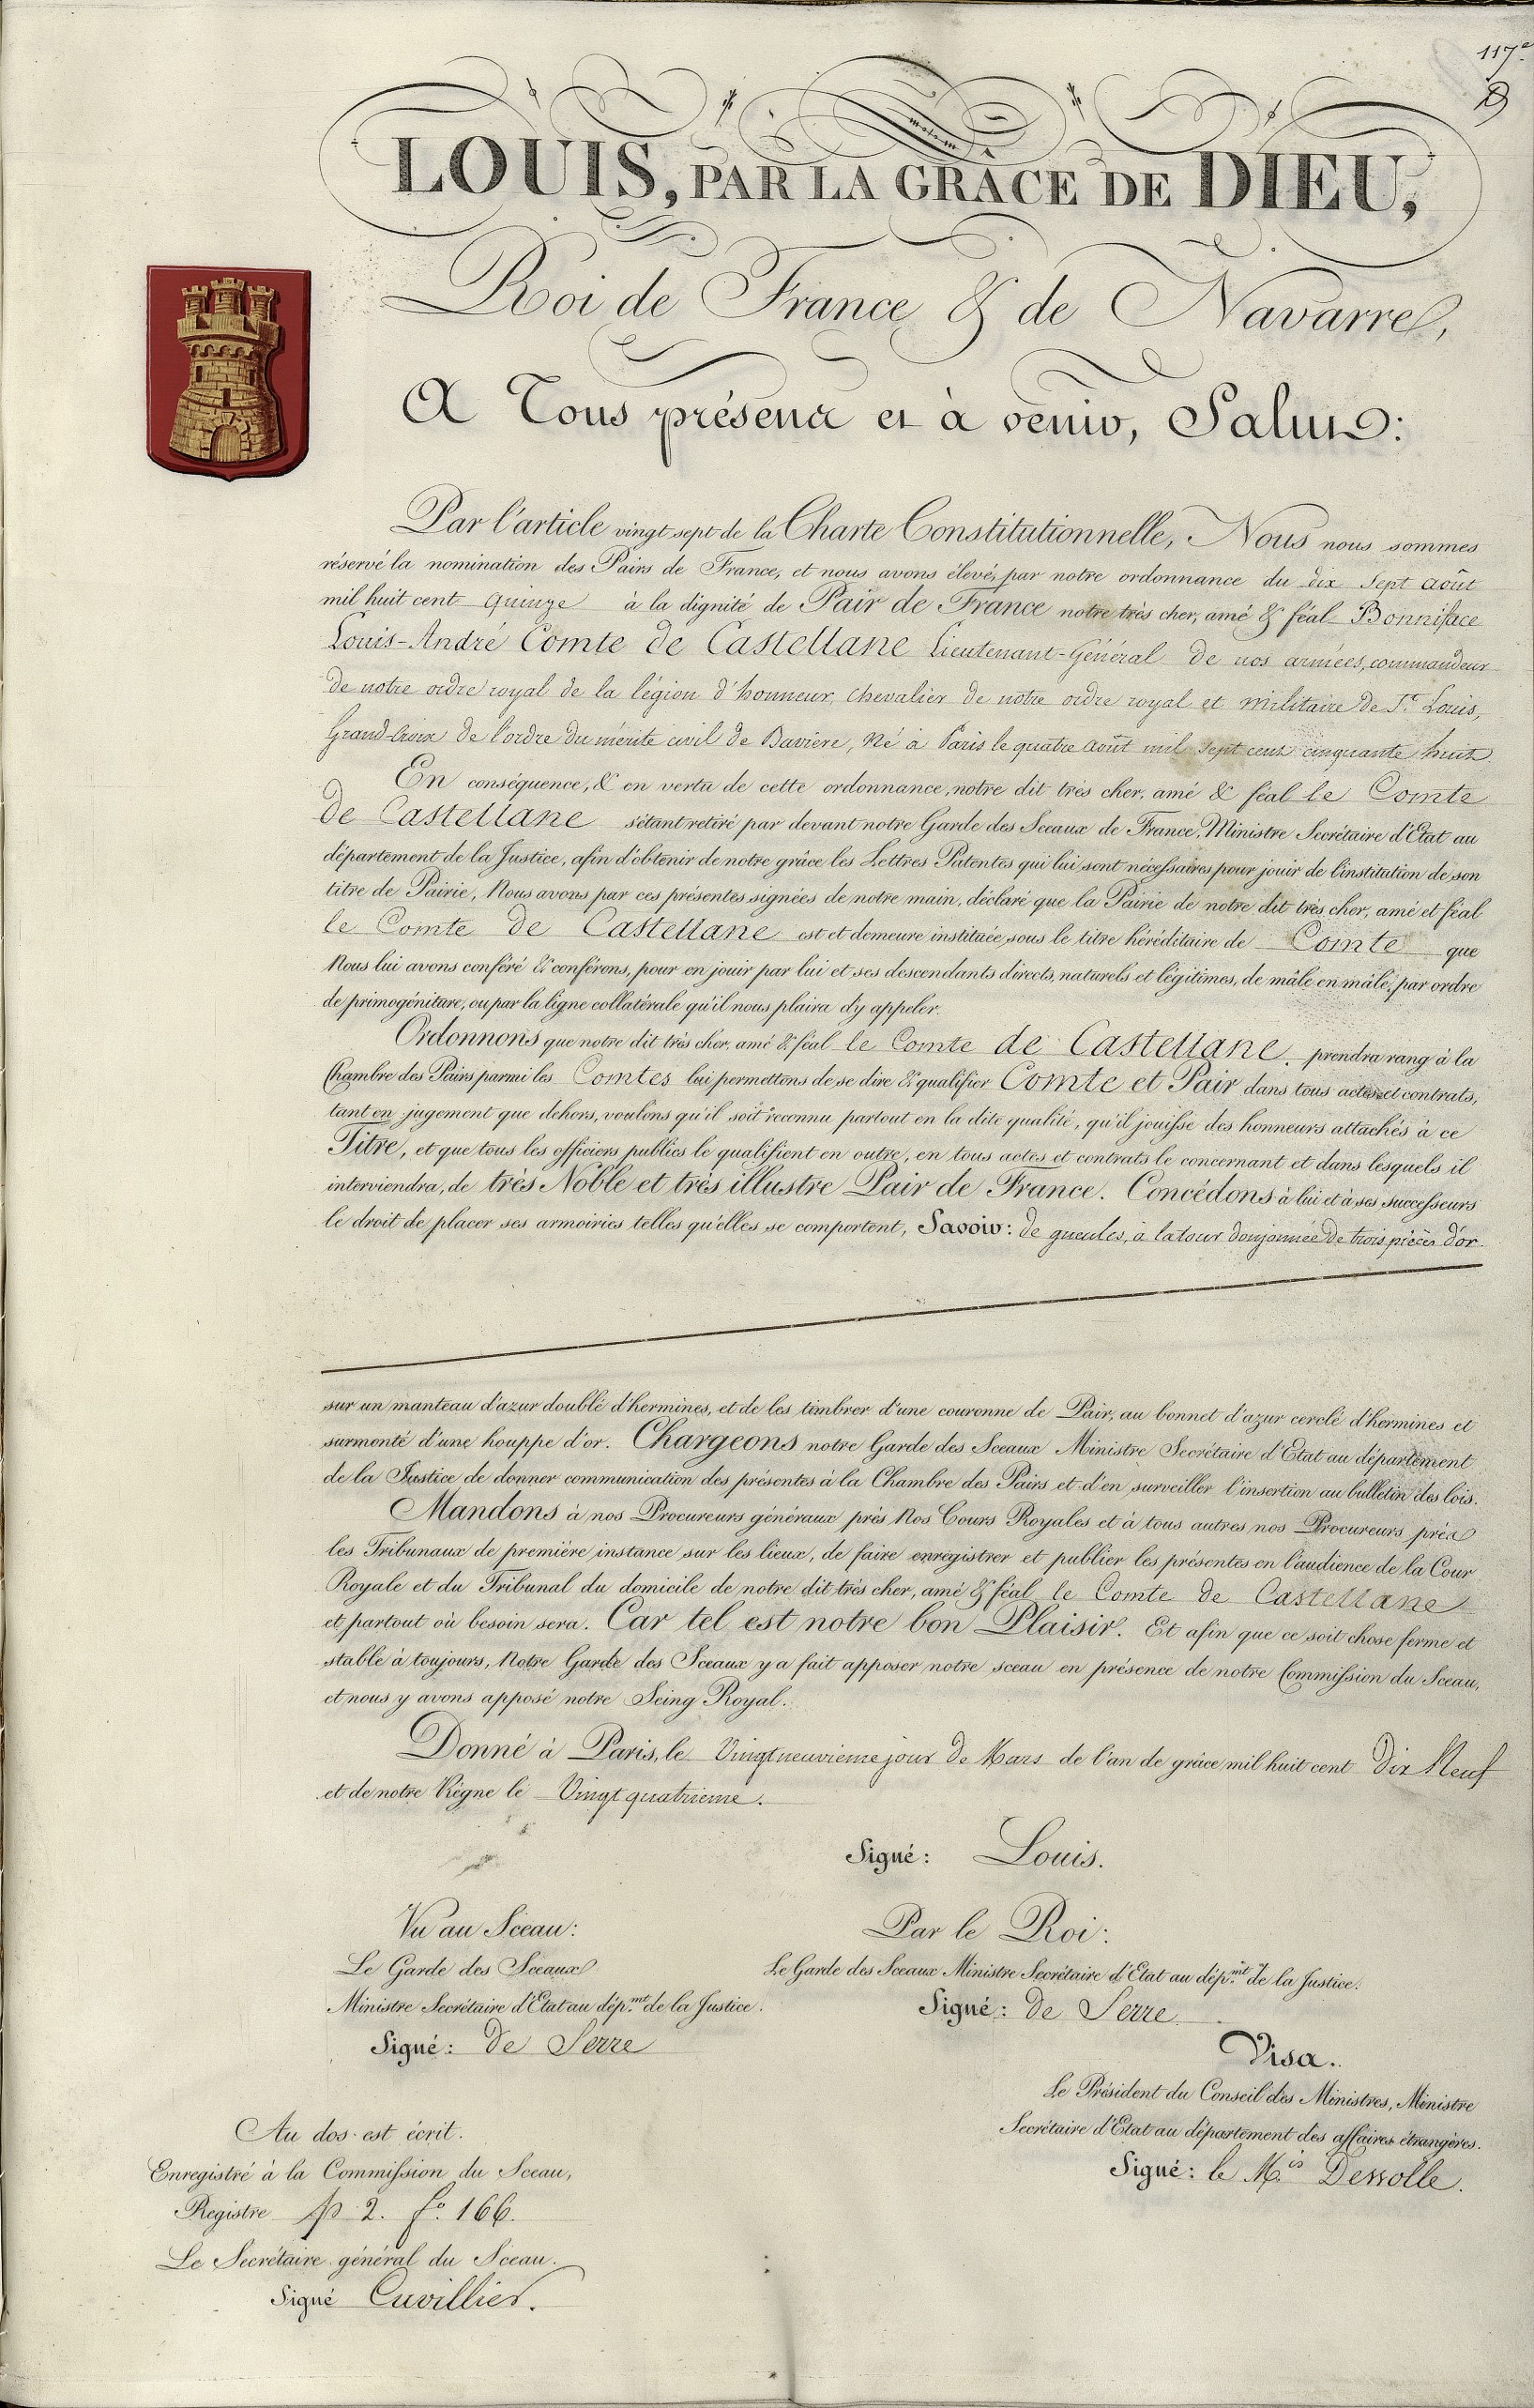 117e
LOUIS, PAR LA GRÂCE DE DIEU,
Roi de France & de Navarre,
A Tous présens et à venir, Salut:
Par l'article vingt sept de la Charte Constitutionnelle, Nous nous sommes
réservé la nomination des Pairs de France, et nous avons élevé, par notre ordonnance du dix Sept août
mil huit cent quinze à la dignité de Pair de France notre très cher, amé & féal Bonniface
Louis-André Comte de Castellane Lieutenant-Général de nos armées, commandeur
de notre ordre royal de la légion d'honneur, chevalier de notre ordre royal et militaire de St. Louis,
Grand-Croix de l'ordre du mérite civil de Bavière, Né à Paris le quatre août mil sept cent cinquante huit.
En conséquence, & en vertu de cette ordonnance, notre dit très cher, amé & féal le Comte
de Castellane s'étant retiré par devant notre Garde des Sceaux de France, Ministre Secrétaire d'Etat au
département de la Justice, afin d'obtenir de notre grâce les Lettres Patentes qui lui sont nécessaires pour jouir de l'institution de son
titre de Pairie, Nous avons par ces présentes signées de notre main, déclaré que la Pairie de notre dit très cher, amé et féal
le Comte de Castellane est et demeure instituée sous le titre héréditaire de Comte que
Nous lui avons conféré & conférons, pour en jouir par lui et ses descendants directs, naturels et légitimes, de mâle en mâle, par ordre
de primogéniture, ou par la ligne collatérale qu'il nous plaira d'y appeler.
Ordonnons que notre dit très cher, amé & féal le Comte de Castellane. prendra rang à la
Chambre des Pairs parmi les Comtes lui permettons de se dire & qualifier Comte et Pair dans tous actes et contrats,
tant en jugement que dehors, voulons qu'il soit reconnu partout en la dite qualité, qu'il jouisse des honneurs attachés à ce
Titre, et que tous les officiers publics le qualifient en outre, en tous actes et contrats le concernant et dans lesquels il
interviendra, de très Noble et très illustre Pair de France. Concédons à lui et à ses successeurs
le droit de placer ses armoiries telles qu'elles se comportent, Savoir: de gueules, à la tour donjonnée de trois pièces d'or.
sur un manteau d'azur doublé d'hermines, et de les timbrer d'une couronne de Pair, au bonnet d'azur cerclé d'hermines et
surmonté d'une houppe d'or. Chargeons notre Garde des Sceaux Ministre Secrétaire d'Etat au département
de la Justice de donner communication des présentes à la Chambre des Pairs et d'en surveiller l'insertion au bulletin des lois.
Mandons à nos Procureurs généraux près Nos Cours Royales et à tous autres nos Procureurs près
les Tribunaux de première instance sur les lieux, de faire enregistrer et publier les présentes en l'audience de la Cour
Royale et du Tribunal du domicile de notre dit très cher, amé & féal le Comte de Castellane
et partout où besoin sera. Car tel est notre bon Plaisir. Et afin que ce soit chose ferme et
stable à toujours, Notre Garde des Sceaux y a fait apposer notre sceau en présence de notre Commission du Sceau,
et nous y avons apposé notre Seing Royal.
Donné à Paris, le Vingt neuvieme jour de Mars de l'an de grâce mil huit cent Dix Neuf
et de notre Règne le Vingt quatrieme.
Signé: Louis.
Vu au Sceau:
Le Garde des Sceaux
Ministre Secrétaire d'Etat au dép.mt de la Justice.
Signé: de Serre
Par le Roi:
Le Garde des Sceaux Ministre Secrétaire d'Etat au dép.mt de la Justice.
Signé: de Serre
Visa.
Le Président du Conseil des Ministres, Ministre
Secrétaire d'Etat au département des affaires étrangères.
Signé: le M.is Dessolle.
Au dos est écrit.
Enregistré à la Commission du Sceau,
Registre p 2. fo. 166.
Le Secrétaire général du Sceau.
Signé Cuvillier.